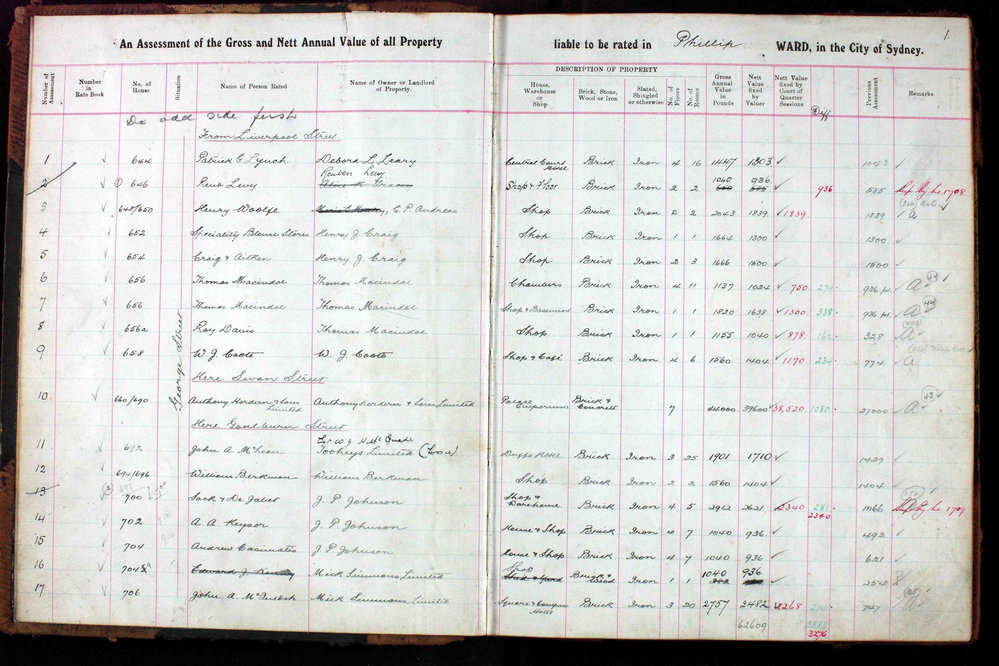 1.
An Assessment of the Gross and Nett Annual Value of all Property liable to be rated in Phillip WARD, in the City of Sydney.
Number of Assessment
Number in Rate Book
No. of House
Situation
Name of Person Rated
Name of Owner or Landlord of Property.
DESCRIPTION OF PROPERTY
House, Warehouse or Shop
Brick, Stone, Wood or Iron
Slated, Shingled or otherwise
No. of Floors
No. of Rooms
Gross Annual Value in Pounds
Nett Value fixed by Valuer
Nett Value fixed by Court of Quarter Sessions
Diff
Previous Assessment
Remarks
Do odd side first
From Liverpool Street
George Street
1 644 Patrick G. Lynch Debora L. Leary Central Court Hotel Brick Iron 4 16 1447 1303 1053
Reuben Levy 1040 936
2 646 Reub Levy Shop & Floor Brick Iron 2 2 585 936 585 1708
3 648/650 Henry Woolfe C P Andreas Shop Brick Iron 2 2 2043 1839 1839 1839 A
4 652 Speciality Blouse Stores Henry J. Craig Shop Brick Iron 1 1 1664 1300 1300
5 654 Craig & Aitken Henry J. Craig Shop Brick Iron 2 3 1666 1500 1500
6 656 Thomas Macindoe Thomas Macindoe Chambers Brick Iron 4 11 1137 1024 750 274 936 pt. A
7 656 Thomas Macindoe Thomas Macindoe Shop & Basement Brick Iron 1 1 1820 1638 1300 338 936 pt. A
8 656a Roy Davis Thomas Macindoe Shop Brick Iron 1 1 1155 1040 878 328 A
9 658 W. J. Coots W. J. Coots Shop & Café Brick Iron 4 6 1560 1404 1170 234 774 A
Here Swan Street
10 660/690 Anthony Hordern & Sons Limited Anthony Hordern & Sons Limited Palace Emporium Brick & Concrete 7 44000 39600 38,520 1080 27000 A
Here Goulburn Street
11 692 John A. McLean Tooheys Limited Brick Iron 3 25 1901 1710 1429
12 694/696 William Berkman William Berkman Shop Brick Iron 2 2 1560 1404 1404
13 700 Sack & De Jabet J P Johnson Shop & Warehouse Brick Iron 4 5 2912 2621 2340 281 1066 1709
2340
14 702 A. A. Keysor J. P. Johnson House & Shop Brick Iron 4 7 1040 936 492
15 704 Andrew Casimatis J. P. Johnson House & Shop Brick Iron 4 7 1040 936 621
Shop 1040 936
16 704½ Mick Simmons Limited Brick & Wood Iron 1 1 254
17 706 Mick Simmons Limited Square & Compass Hotel Brick Iron 3 20 2757 2482 2268 747 A
62609
3276